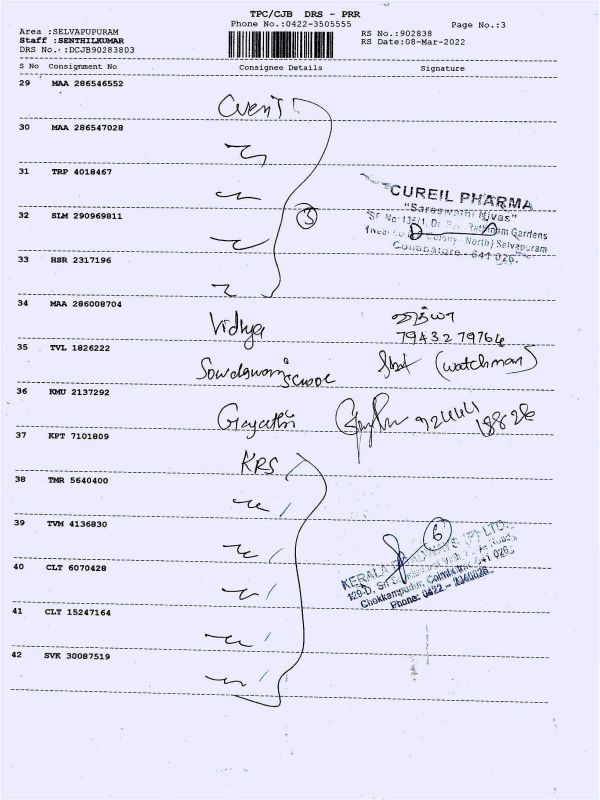 TPC/CJB DRS - PRR
Phone No.:0422-3505555
Page No.:3
Area :SELVAPUPURAM
Staff :SENTHILKUMAR
DRS No.:DCJB90283803
RS No.:902838
RS Date:08-Mar-2022
S No Consignment No Consignee Details Signature
29 MAA 286546552
30 MAA 286547028
31 TRP 4018467
CUREIL PHARMA
"Saraswathi Nivas"
Gardens
North) Selvapuram
Coimbatore - 641 026.
32 SLM 290969811 3
33 HSR 2317196
34 MAA 286008704 Vidhya
35 TVL 1826222 School (watchman)
36 KMU 2137292 Gayathri
37 KPT 7101809 KRS
38 TMR 5640400
39 TVM 4136830
6
KERALA LTD.
129-D, Sri Road,
Chokkampudur, Coimbatore 641 026
Phone: 0422 -
40 CLT 6070428
41 CLT 15247164
42 SVK 30087519